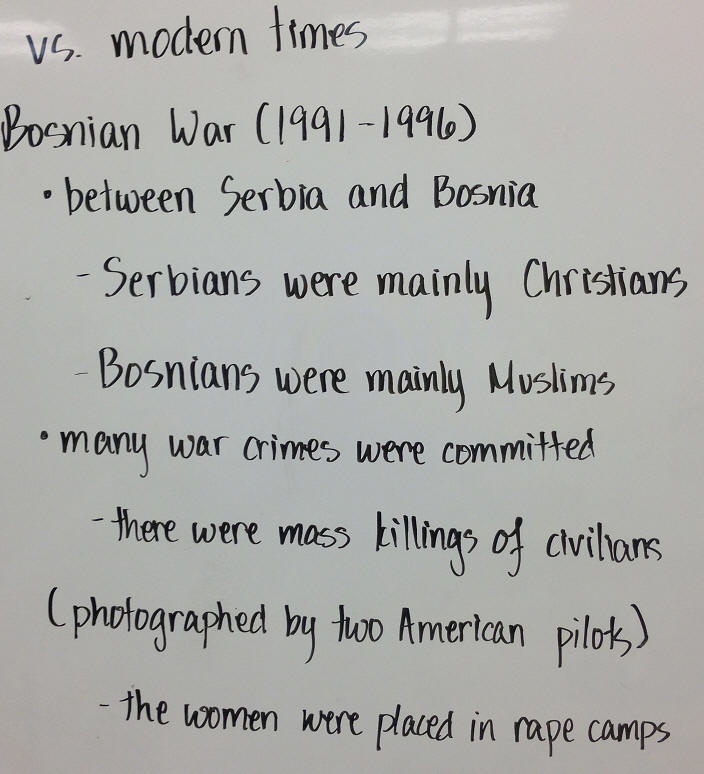 vs. modern times
Bosnian War (1991-1996)
• between Serbia and Bosnia
- Serbians were mainly Christians
- Bosnians were mainly Muslims
• many war crimes were committed
- there were mass killings of civilians
(photographed by two American pilots)
- the women were placed in rape camps